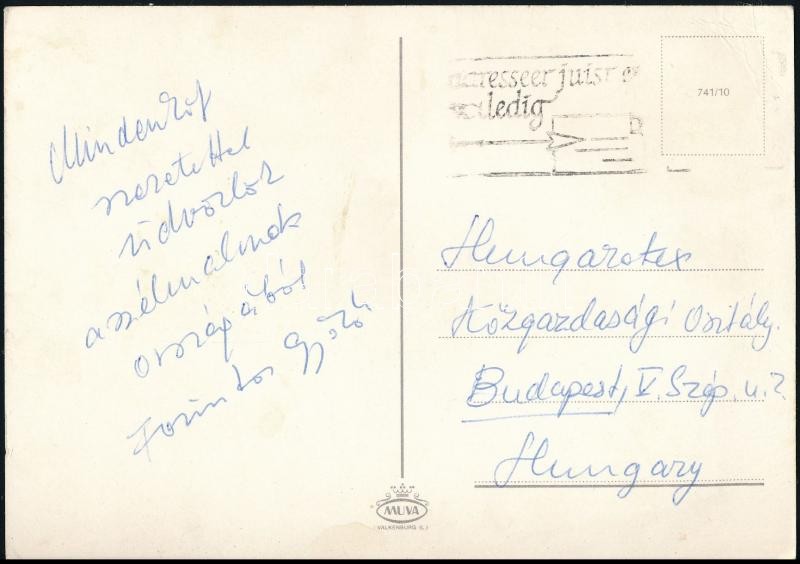 Mindenkit
szeretettel
üdvözlök
a szélmalmok
országából
Forintos Győző
adresseer juist
volledig
741/10
Hungarotex
Közgazdasági Osztály.
Budapest, V. Szép. u. 2
Hungary
MUVA
VALKENBURG (L.)